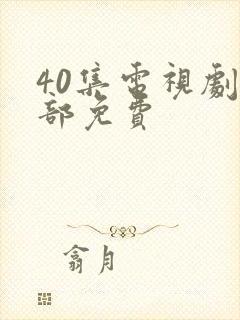 40集電視劇
部免費
翕月